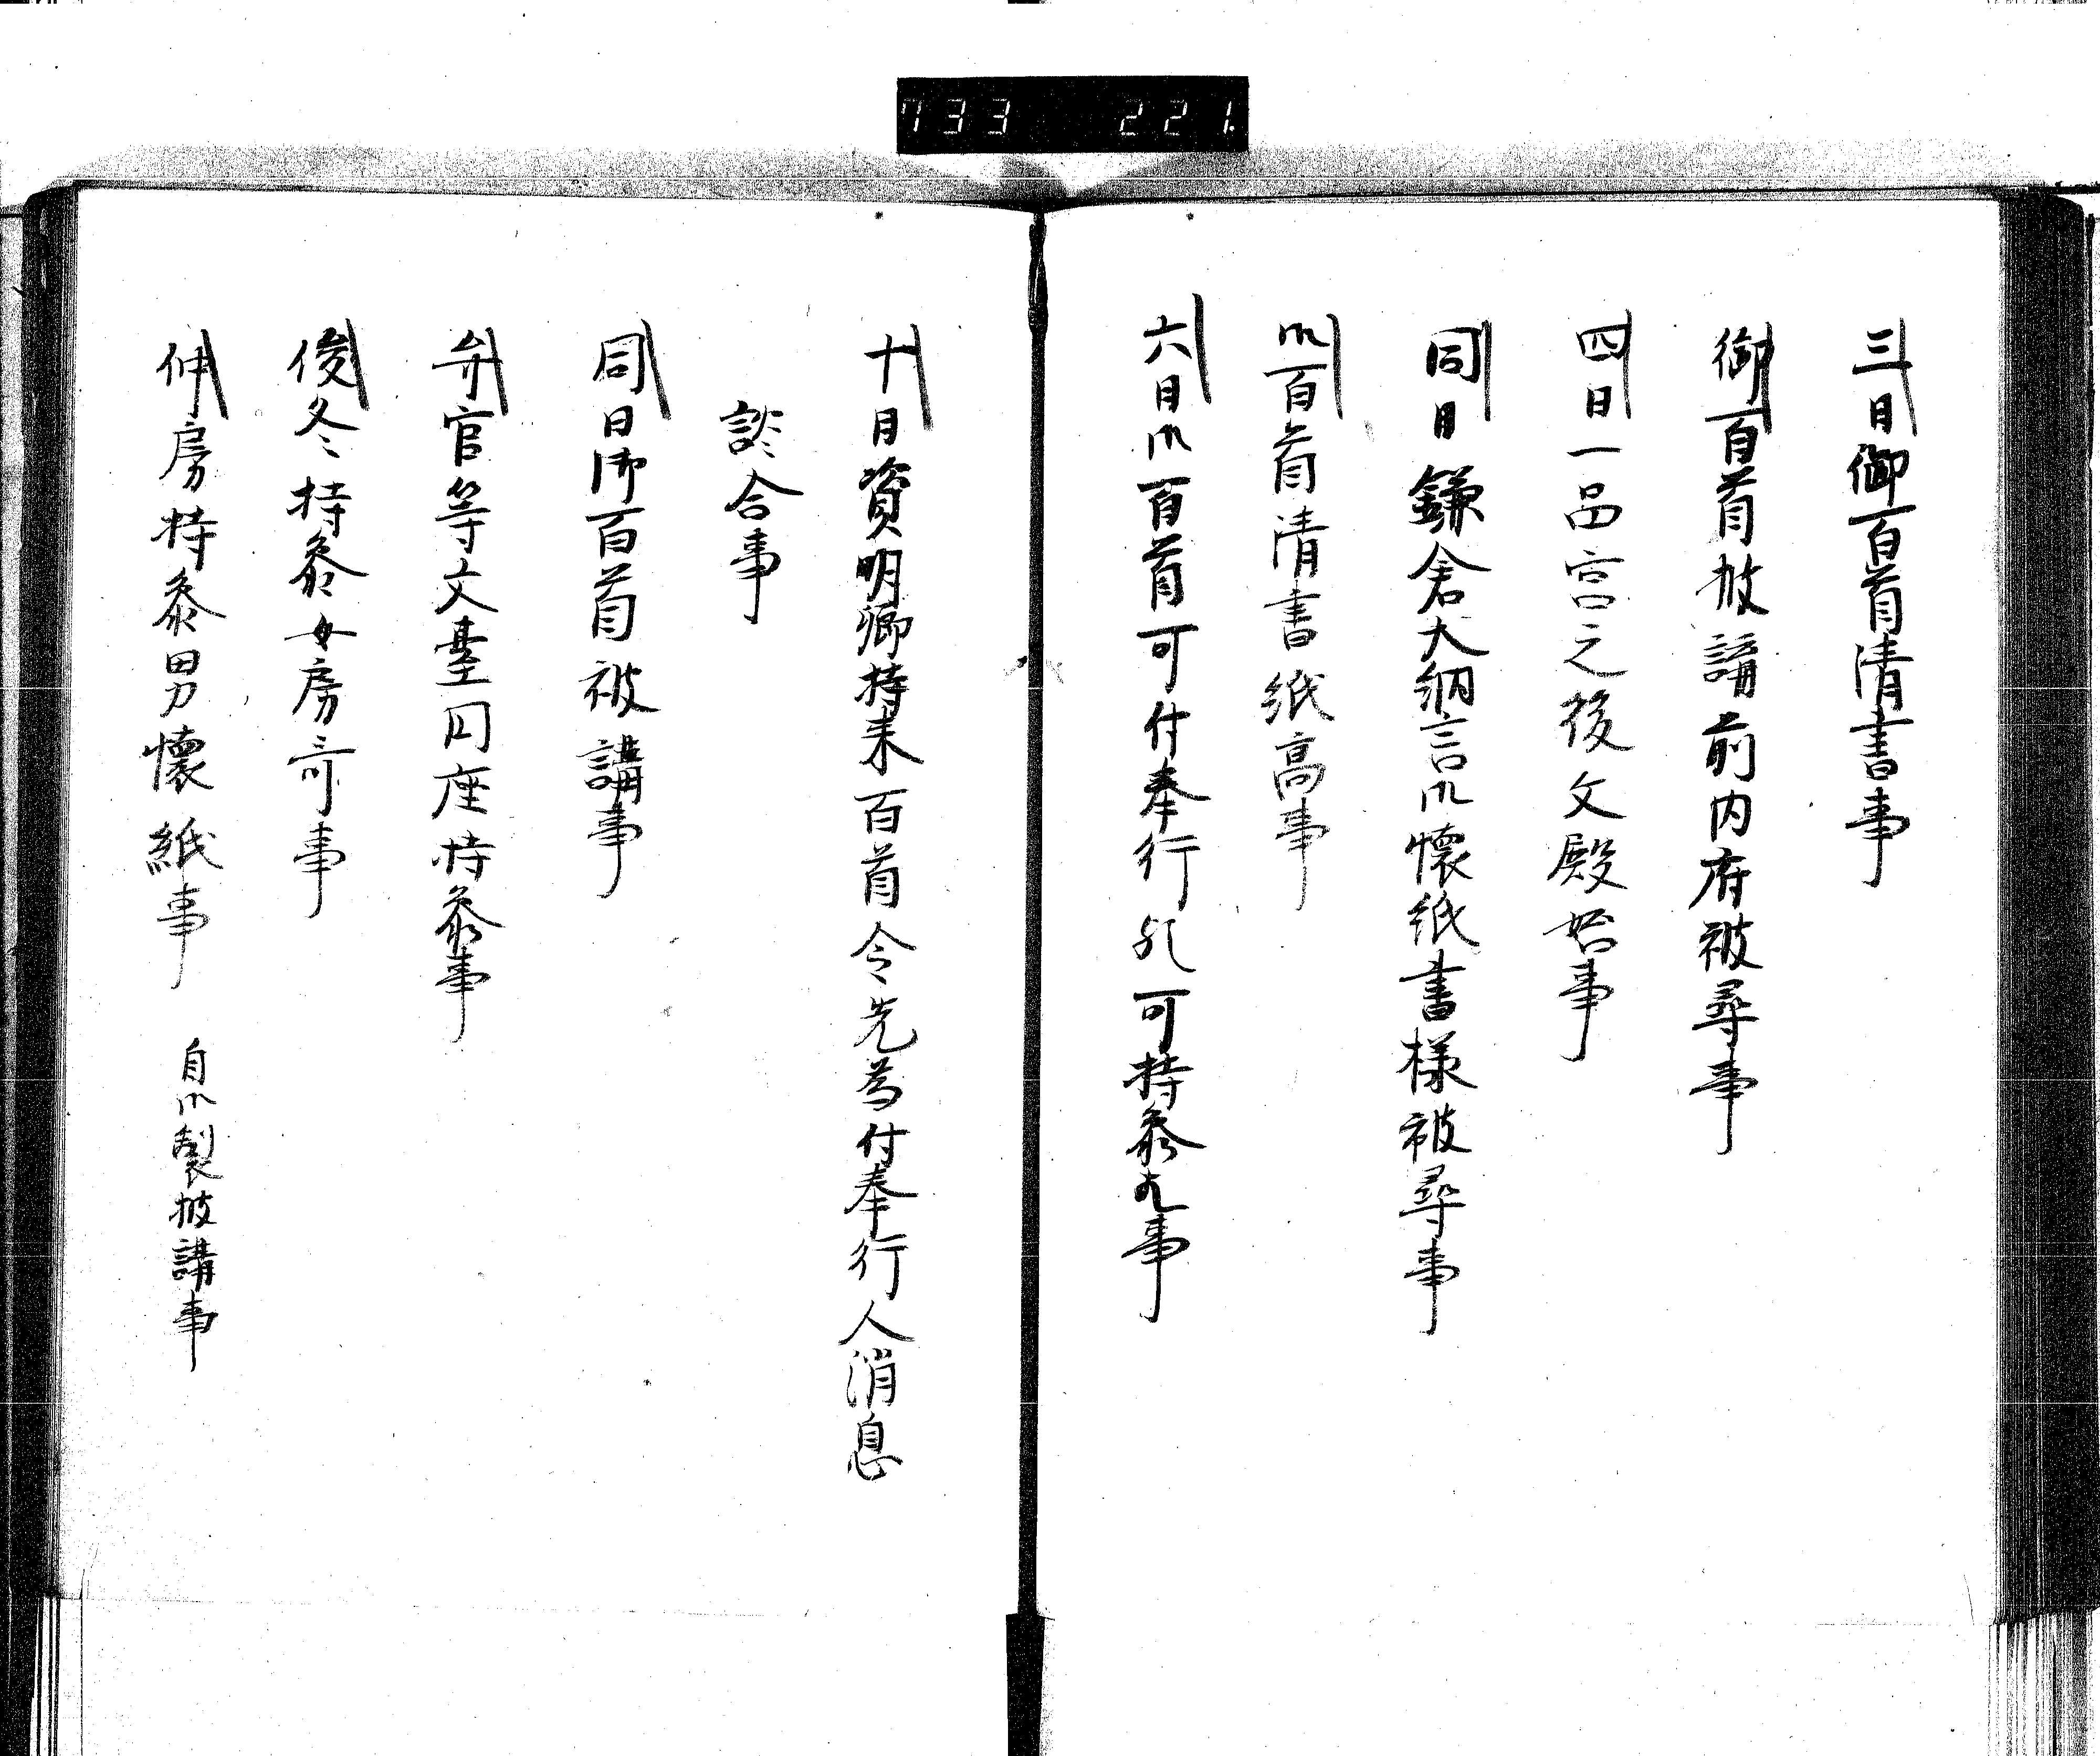 733 221.
三日御百首清書事
御百首披講前内府被尋事
四日一品宮之後文殿始事
同日鎌倉大納言御懐紙書様被尋事
御百首清書紙高事
六日御百首可付奉行欤可持参欤事
十日資明卿持来百首令先為付奉行人消息
談合事
同日御百首被講事
弁官等文臺円座持参事
俊冬持参女房哥事
仲房持参男懐紙事 自御製披講事